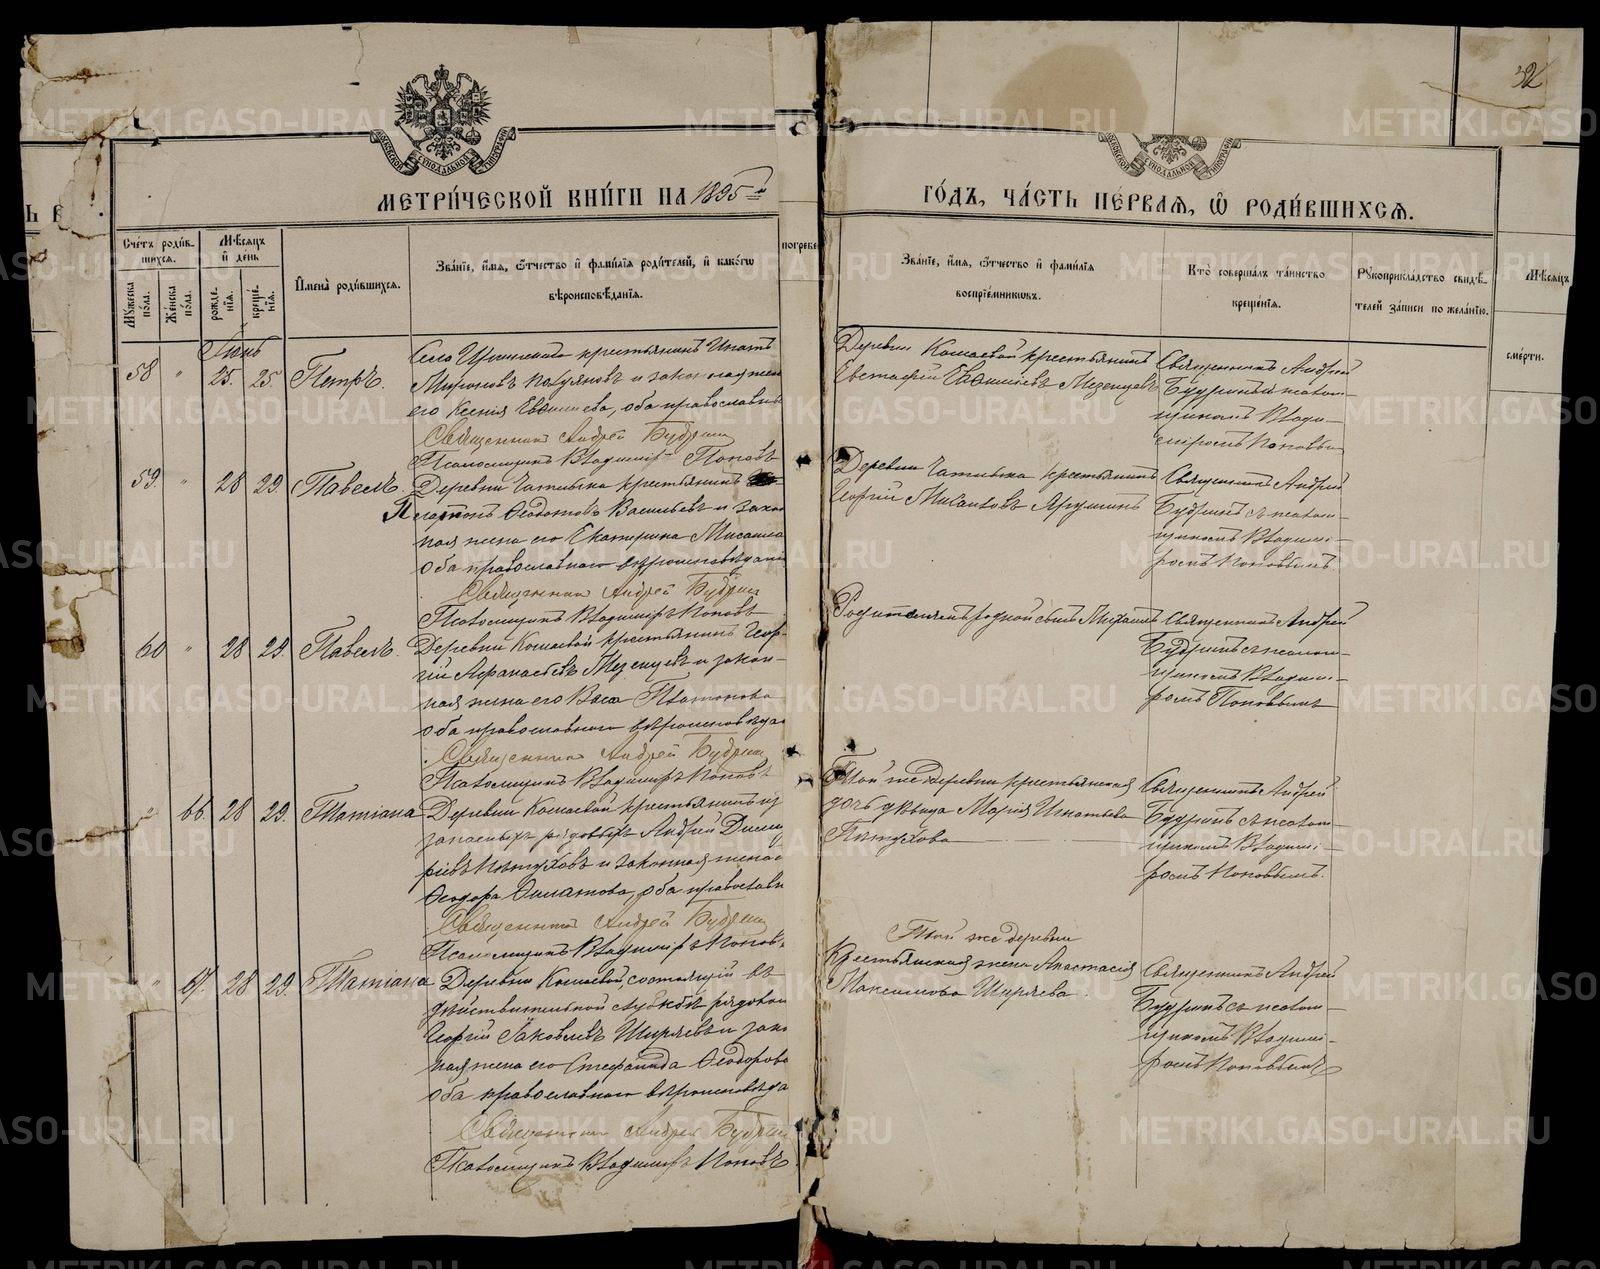 32
МЕТРИЧЕСКОЙ КНИГИ НА 1895й
ГОДЪ, ЧАСТЬ ПЕРВАЯ, Ѡ РОДИВШИХСЯ.
Счетъ родив-
шихся.
Мѣсяцъ
и день
Мужеска
пола.
Женска
пола.
рожде-
нія.
креще-
нія.
Имена родившихся.
Званіе, имя, отчество и фамилія родителей, и какогѡ
вѣроисповѣданія.
погребе
Званіе, имя, отчество и фамилія
воспріемниковъ.
Кто совершалъ таинство
крещенія.
Рукоприкладство свидѣ-
телей записи по желанію.
Мѣсяцъ
смерти.
58 " 25. 25 Петръ.
крестьянинъ Игнатъ
Мироновъ и законная жена
его Ксенія Евѳиміева, оба православн
Священникъ Андрей Будринъ
Псаломщикъ Владиміръ Поповъ
Деревни Кошаевой крестьянинъ
Евстафій Евѳиміевъ Мезенцевъ
Священникъ Андрей
Будринъ съ псалом-
щикомъ Влади-
міромъ Поповым
59. " 28 29 Павелъ.
Деревни крестьянинъ
Платонъ Ѳедотовъ Васильевъ и закон
ная жена его Екатерина
оба православнаго вѣроисповѣдані
Священникъ Андрей Будринъ
Псаломщикъ Владиміръ Поповъ
Деревни крестьянинъ
Георгій Ярушинъ
Священникъ Андрей
Будринъ съ псалом-
щикомъ Владимі-
ромъ Поповымъ.
60 " 28 29. Павелъ.
Деревни Кошаевой крестьянинъ Геор-
гій Афанасьевъ Мезенцевъ и закон-
ная жена его Васса Платонова
оба православнаго вѣроисповѣда
Священникъ Андрей Будринъ
Псаломщикъ Владиміръ Поповъ
Родителямъ родной сынъ Михаилъ
Священникъ Андрей
Будринъ съ псалом-
щикомъ Владимі-
ромъ Поповымъ
" 66. 28 29. Татіана
Деревни Кошаевой крестьянинъ из
запасныхъ рядовыхъ Андрей Дмит
ріевъ Пѣтуховъ и законная жена е
Ѳеодора Филатова, оба православн
Священникъ Андрей Будринъ
Псаломщикъ Владиміръ Поповъ
Той же деревни крестьянская
дочь дѣвица Марія Игнатьева
Пѣтухова
Священникъ Андрей
Будринъ съ псалом-
щикомъ Владимі-
ромъ Поповымъ.
" 67. 28 29. Татіана
Деревни Кошаевой, состоящій въ
дѣйствительной службѣ рядовой
Георгій Іаковлевъ Ширяевъ и закон
ная жена его Стефанида Ѳеодорова
оба православнаго вѣроисповѣда
Священникъ Андрей Будринъ
Псаломщикъ Владиміръ Поповъ
Той же деревни
Крестьянская жена Анастасія
Максимова Ширяева.
Священникъ Андрей
Будринъ съ псалом-
щикомъ Владимі-
ромъ Поповымъ
METRIKI.GASO-URAL.RU